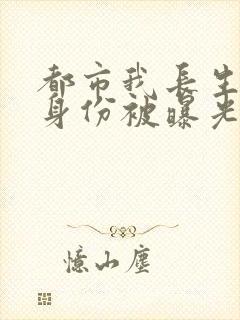 都市我長生
身份被曝光
憶山塵